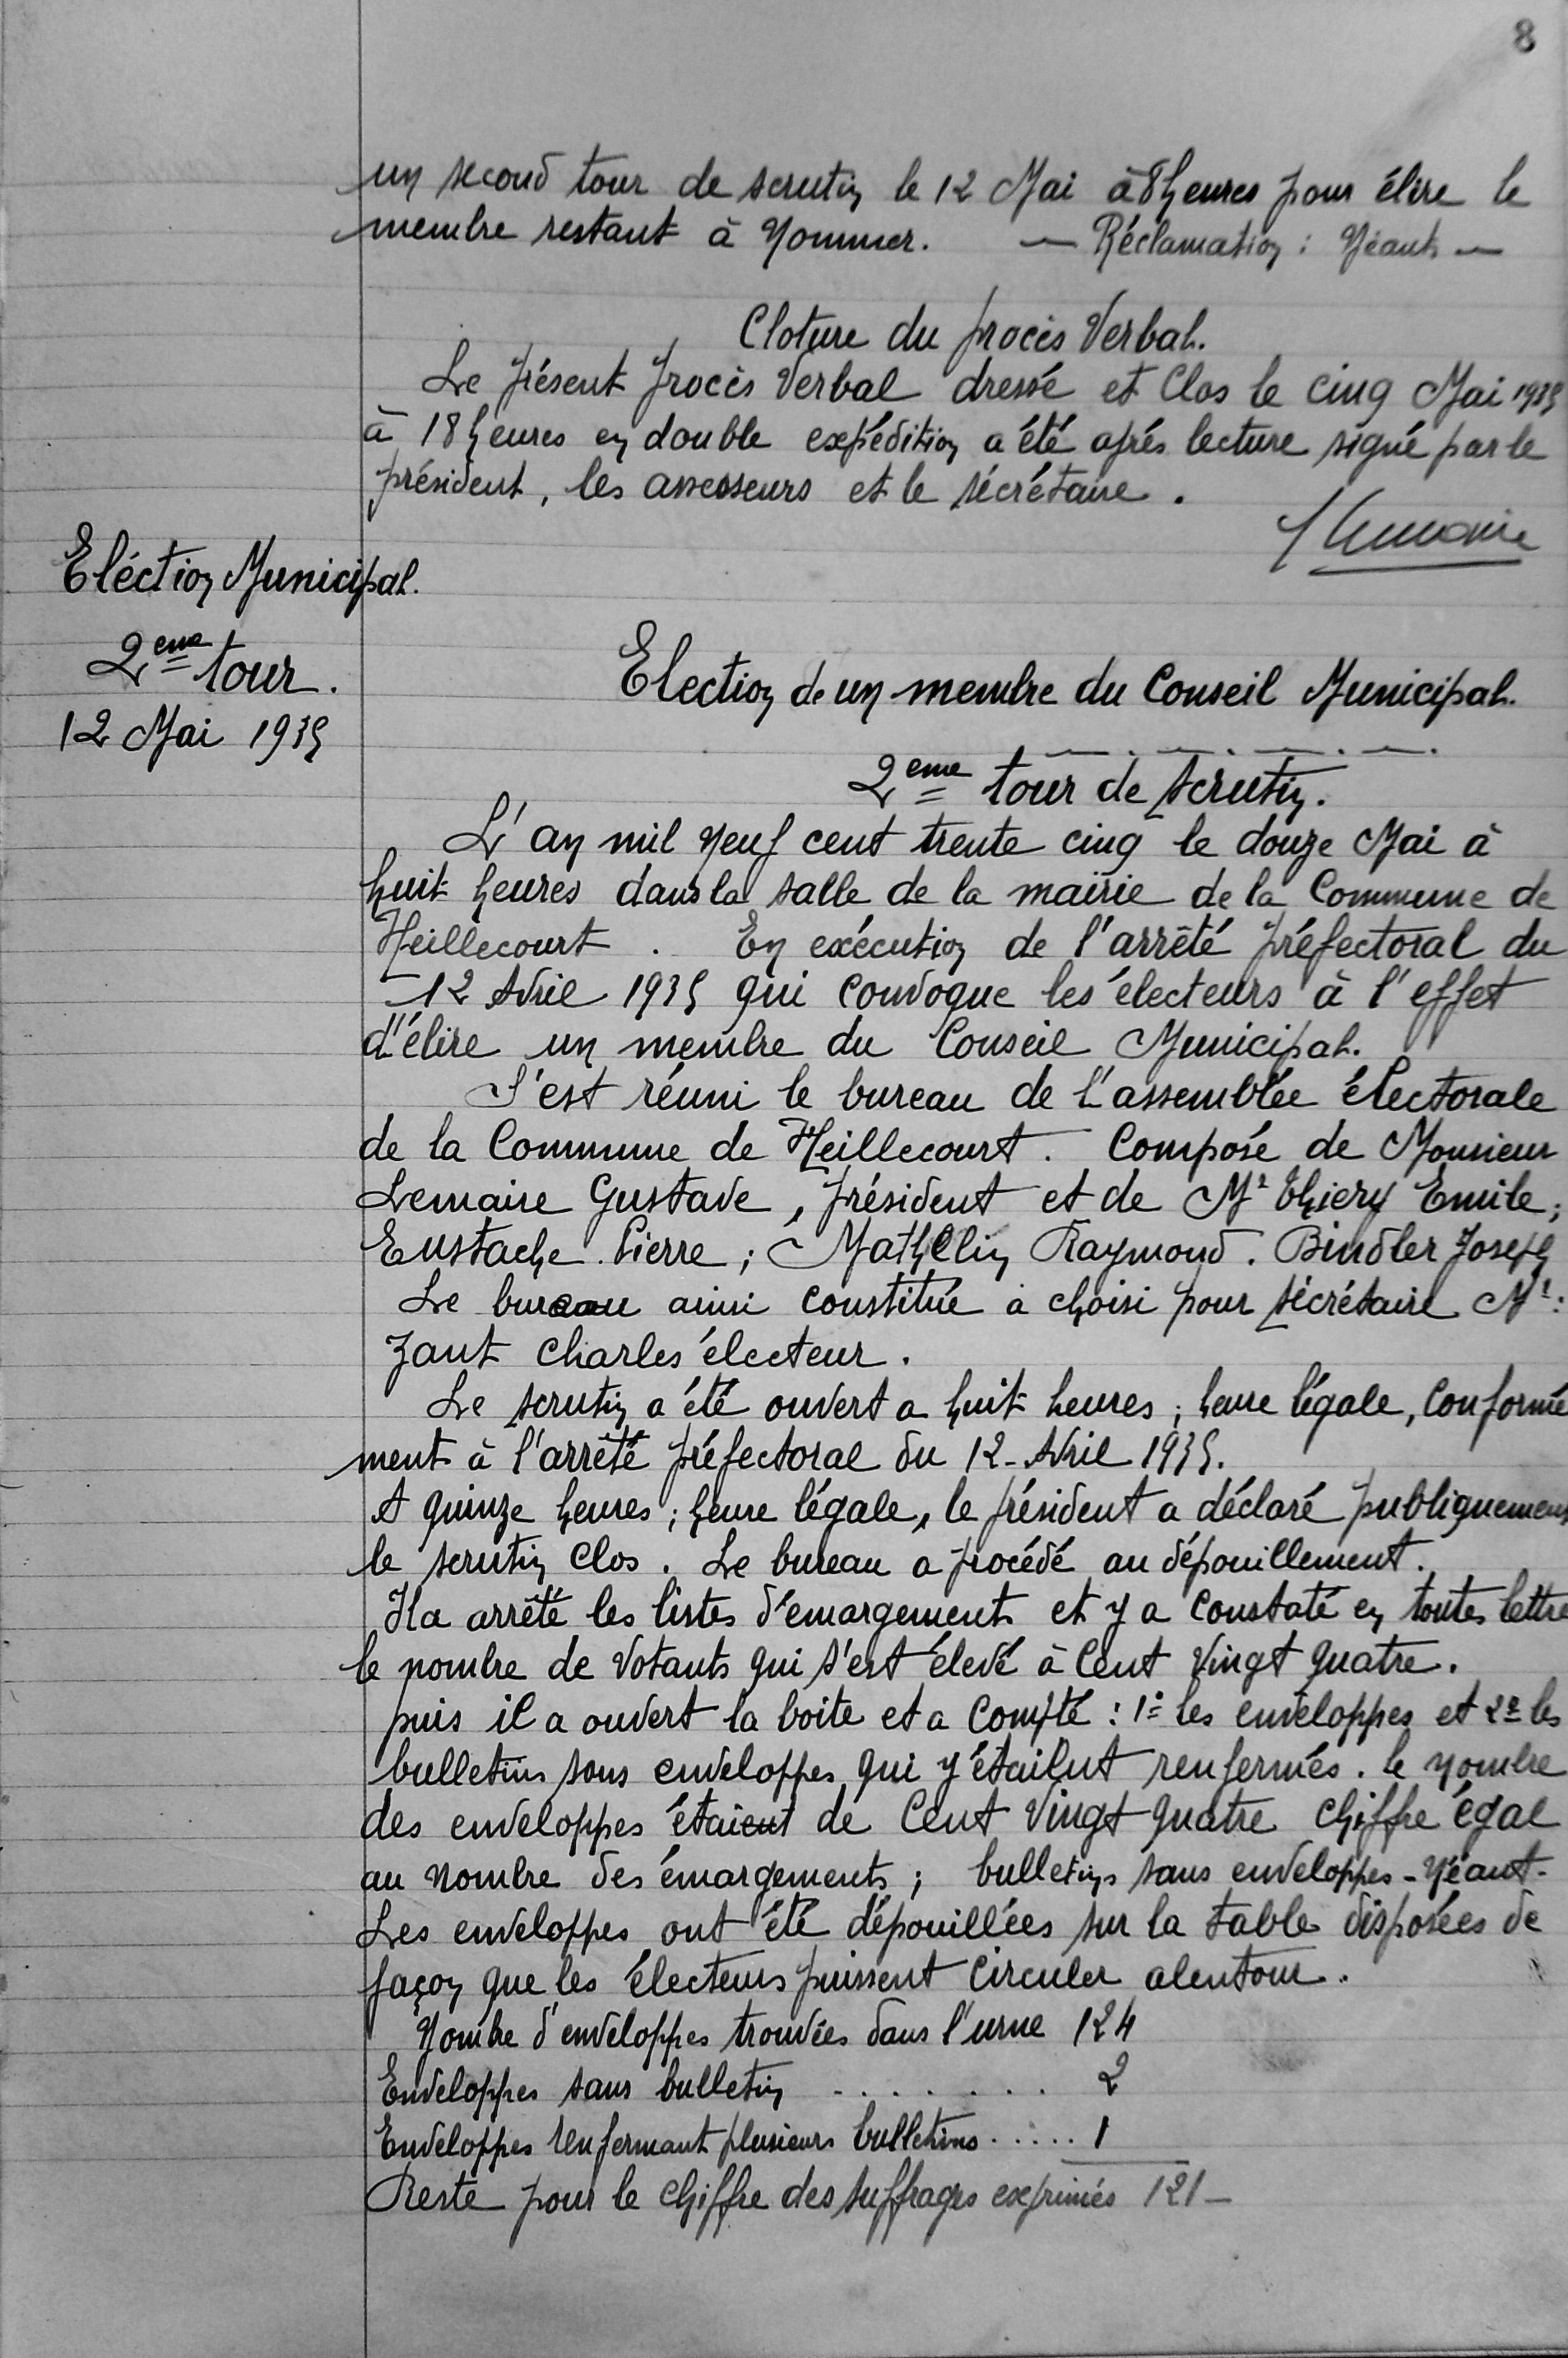 8
un second tour de scrutin le 12 Mai à 8 heures pour élire le
membre restant à Nommer. — Réclamation : Néant —
Cloture du procès Verbal.
Le présent procès Verbal dressé et Clos le cinq Mai 1935
à 18 heures en double expédition a été après lecture signé par le
président, les assesseurs et le sécrétaire.
Lemaire
Eléction Municipal.
2ème tour.
12 Mai 1935
Election de un membre du Conseil Municipal.
2eme tour de scrutin.
L'an mil neuf cent trente cinq le douze Mai à
huit heures dans la salle de la mairie de la Commune de
Heillecourt. En exécution de l'arrêté préfectoral du
12 Avril 1935 qui convoque les électeurs à l'effet
d'élire un membre du Conseil Municipal.
S'est réuni le bureau de l'assemblée électorale
de la Commune de Heillecourt. Composé de Monsieur
Lemaire Gustave, président et de Mr Thiery Emile;
Eustache Pierre; Mathelin Raymond. Bindler Joseph
Le bureau ainsi constitué a choisi pour sécrétaire Mr:
Zant Charles électeur.
Le scrutin a été ouvert a huit heures; heure légale, Conformé
ment à l'arrêté préfectoral du 12 - Avril 1935.
A quinze heures; heure légale, le président a déclaré publiquement
le scrutin clos. Le bureau a procédé au dépouillement.
Il a arrêté les listes d'émargements et y a constaté en toutes lettre
le nombre de Votants qui s'est élevé à Cent Vingt quatre.
puis il a ouvert la boite et a Compté : 1° les enveloppes et 2° les
bulletins sans enveloppes qui y étaient renfermés. le nombre
des enveloppes étaient de Cent Vingt quatre chiffre égal
au nombre des émargements; bulletins sans enveloppes - Néant -
Les enveloppes ont été dépouillées sur la table disposées de
façon que les électeurs puissent circuler alentour.
Nombre d'enveloppes trouvées dans l'urne 124
Enveloppes sans bulletin . . . . . . . 2
Enveloppes renfermant plusieurs bulletins ..... 1
Reste pour le chiffre des suffrages exprimés 121 -